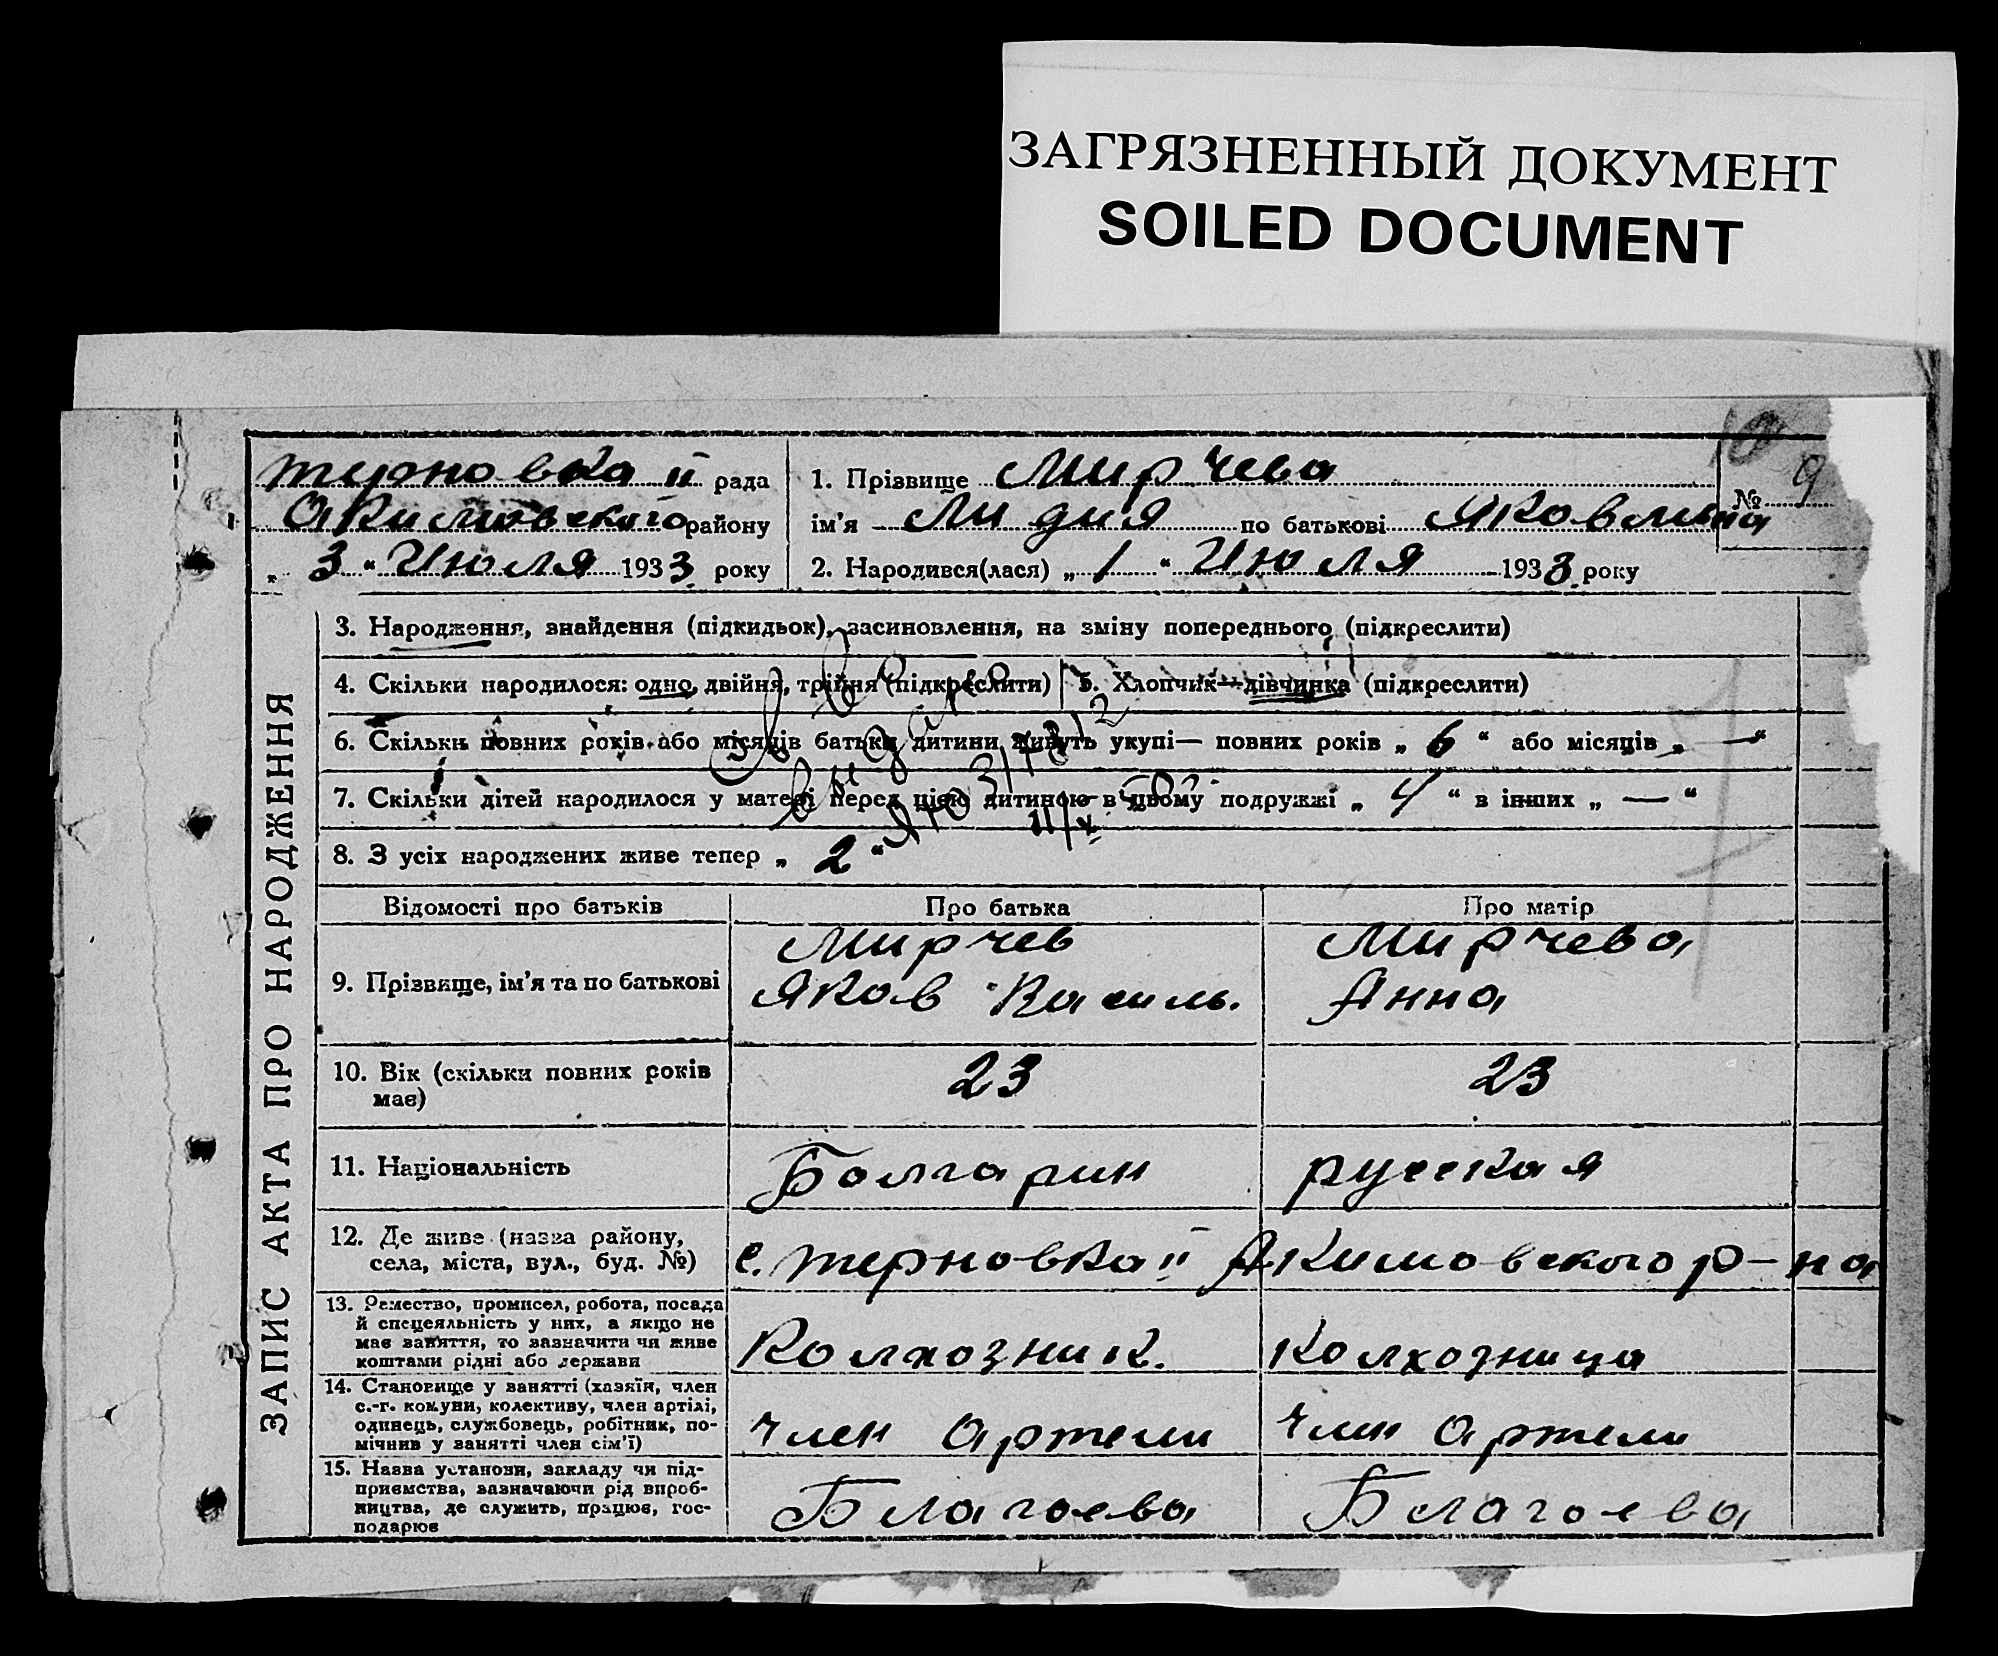 ЗАГРЯЗНЕННЫЙ ДОКУМЕНТ
SOILED DOCUMENT
ЗАПИС АКТА ПРО НАРОДЖЕННЯ
терновка II рада
Акимовского району
„ 3 “ Июля 1933 року
№ 9
1. Прізвище Мирчева
ім’я Лидия по батькові Яковлевна
2. Народився(лася) „ 1 “ Июля 1933 року
3. Народження, знайдення (підкидьок), засиновлення, на зміну попереднього (підкреслити)
4. Скільки народилося: одно, двійня, трійня (підкреслити) 5. Хлопчик—дівчинка (підкреслити)
6. Скільки повних років або місяців батьки дитини живуть укупі— повних років „ 6 “ або місяців „ — “
7. Скільки дітей народилося у матері перед цією дитиною в цьому подружжі „ 4 “ в інших „ — “
8. З усіх народжених живе тепер „ 2 “
Відомості про батьків Про батька Про матір
9. Прізвище, ім’я та по батькові
Мирчев
Яков Василь.
Мирчева
Анна
10. Вік (скільки повних років
має)
23 23
11. Національність Болгарин русская
12. Де живе (назва району,
села, міста, вул., буд. №)
с. терновка II Акимовского р-на
13. Ремество, промисел, робота, посада
й спецеяльність у них, а якщо не
має заняття, то зазначити чи живе
коштами рідні або держави
Колхозник. Колхозница
14. Становище у занятті (хазяїн, член
с.-г. комуни, колективу, член артілі,
одинець, службовець, робітник, по-
мічнив у занятті член сім’ї)
член артели член артели
15. Назва установи, закладу чи під-
приємства, зазначаючи рід вироб-
ництва, де служить, працює, гос-
подарює
Благоева Благоева